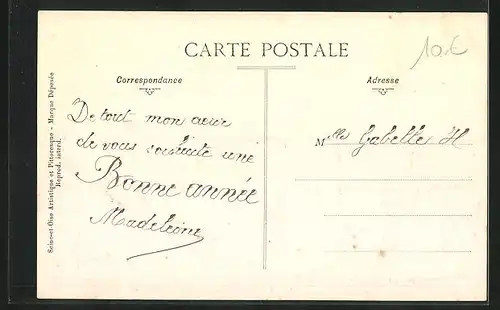 CARTE POSTALE
10.€
Correspondance
Adresse
De tout mon cœur
je vous souhaite une
Bonne année
Madeleine
Mlle Gabelle H
Seine-et-Oise Artistique et Pittoresque - Marque Déposée
Reprod. interd.